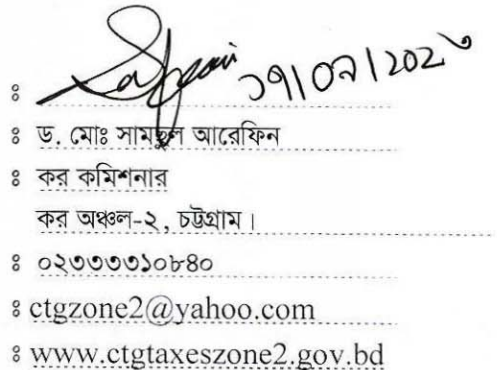 ১৭/০৭/২০২৩
ঃ
ঃ ড. মোঃ সামছুল আরেফিন
ঃ কর কমিশনার
কর অঞ্চল-২, চট্টগ্রাম।
ঃ ০২৩৩৩৩১০৮৪০
ঃ ctgzone2@yahoo.com
ঃ www.ctgtaxeszone2.gov.bd